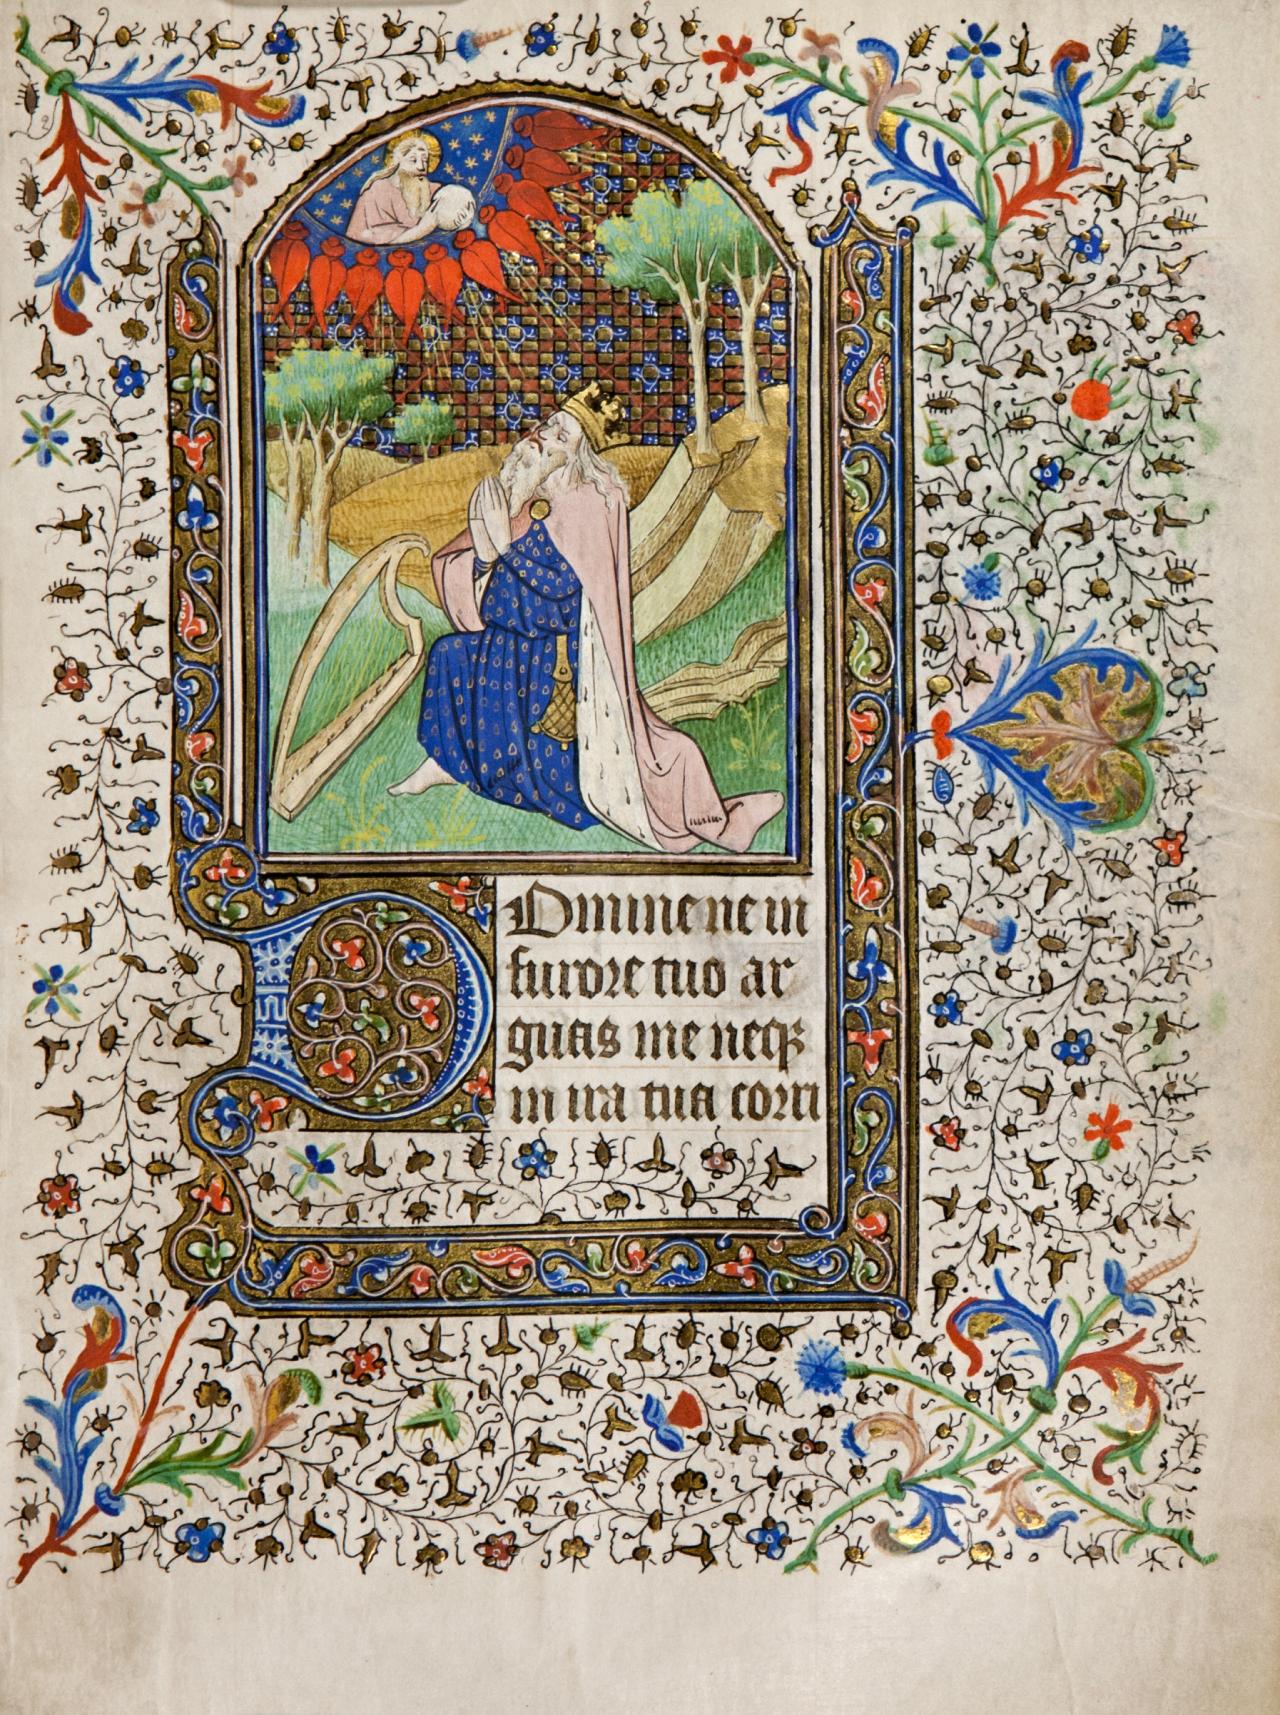 Domine ne in
furore tuo ar
guas me neqꝫ
in ira tua cori